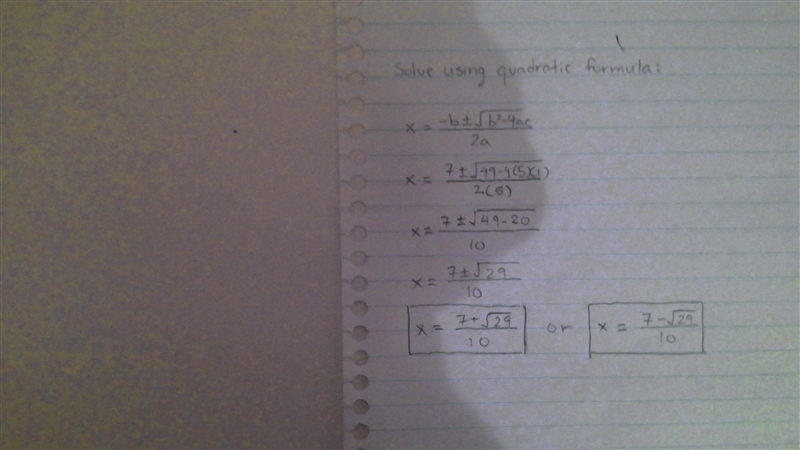 Solve using quadratic formula:
x = -b ± √b²-4ac / 2a
x = 7 ± √49-4(5)(1) / 2(5)
x = 7 ± √49-20 / 10
x = 7 ± √29 / 10
x = 7+√29 / 10 or x = 7-√29 / 10